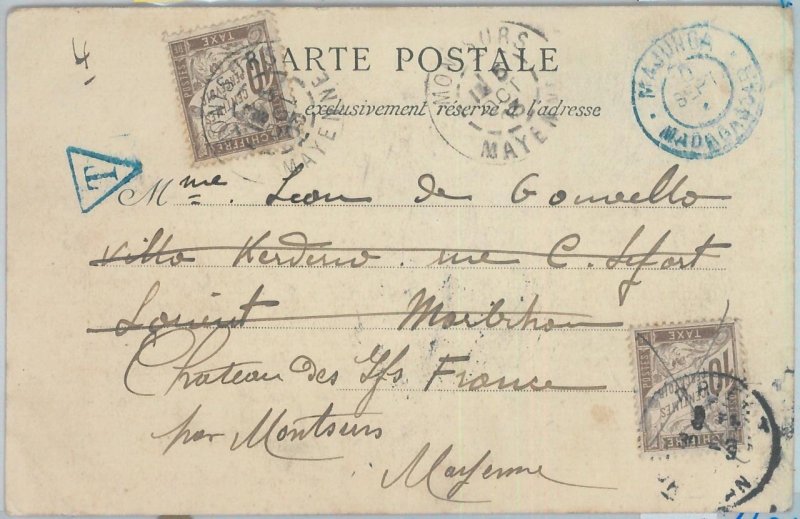 CARTE POSTALE
exclusivement réservé à l'adresse
MONTSURS
MAYENNE
MAJUNGA
MADAGASCAR
10
CENTIMES
TAXE
CHIFFRE
MAYENNE
T
Mme. Leon de Gouvello
Villa Kerderno. rue C. Lefort
Lorient Morbihan
Chateau des Ifs France
par Montsurs
Mayenne
10
CENTIMES
TAXE
CHIFFRE